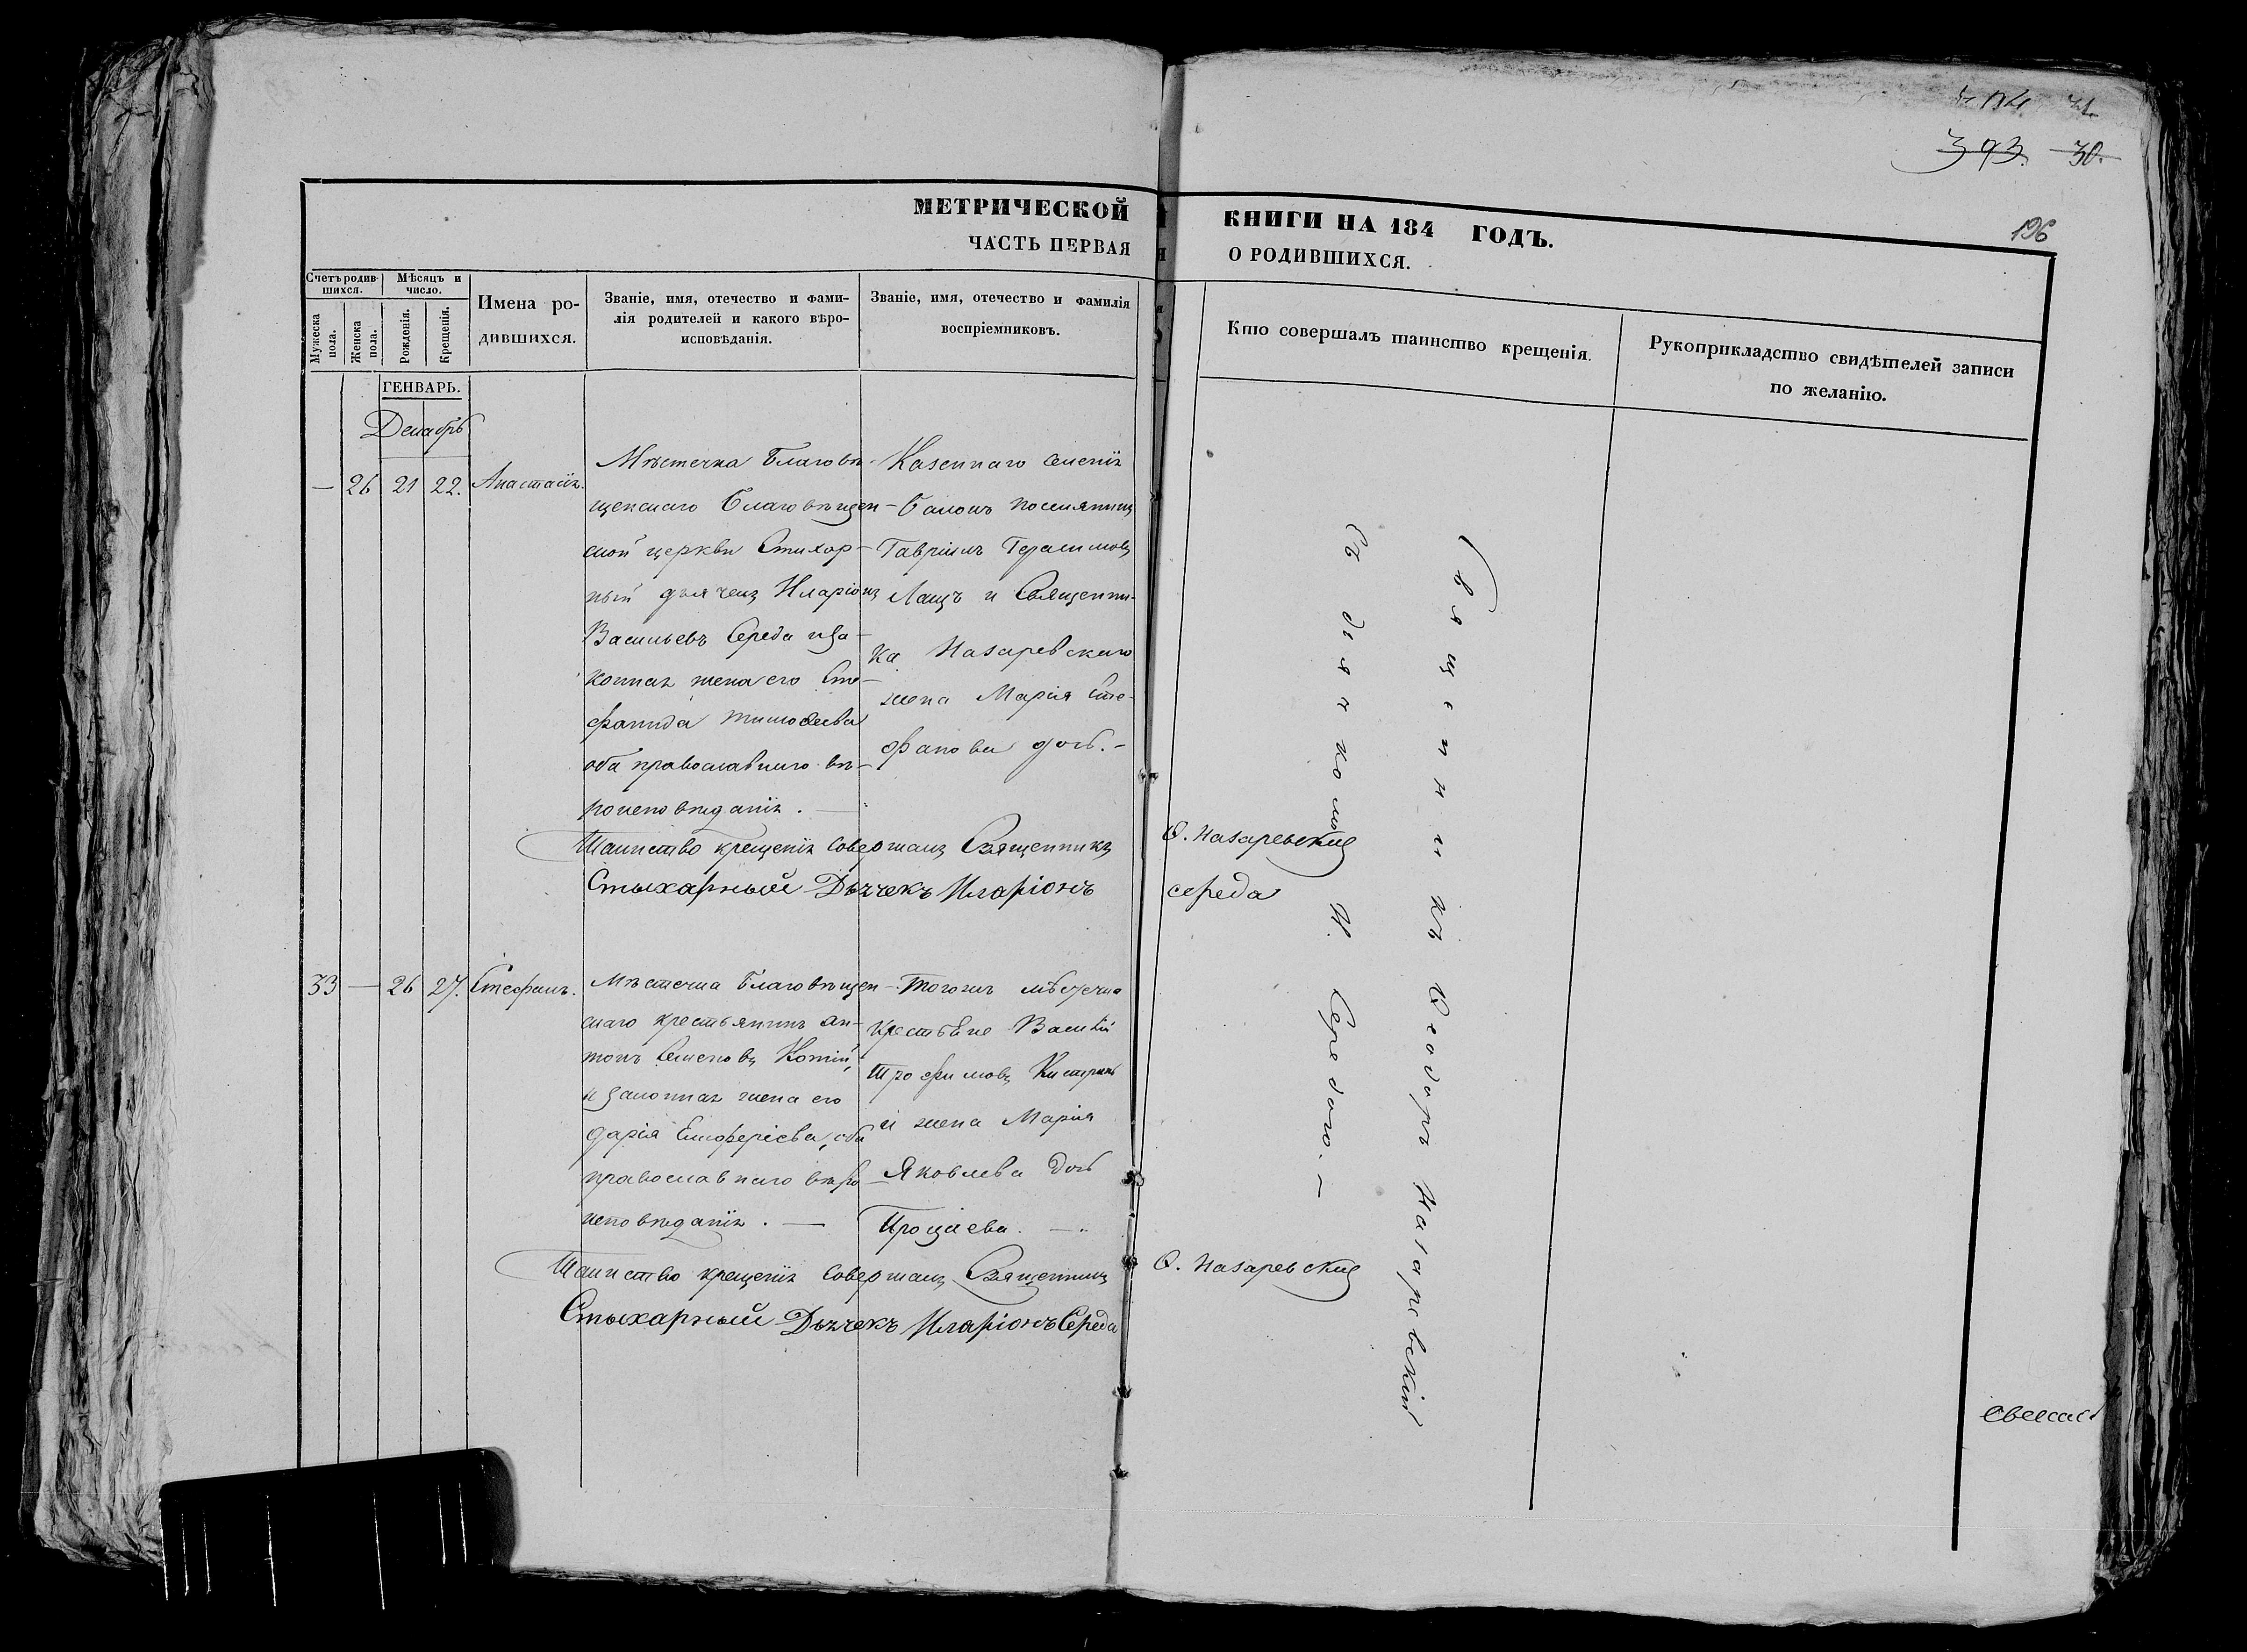 393. 30.
196
МЕТРИЧЕСКОЙ КНИГИ НА 184 ГОДЪ.
ЧАСТЬ ПЕРВАЯ О РОДИВШИХСЯ.
Счетъ родив-
шихся.
Мужеска
пола.
Женска
пола.
Мѣсяцъ и
число.
Рожденія.
Крещенія.
Имена ро-
дившихся.
Званіе, имя, отечество и фами-
лія родителей и какого вѣро-
исповѣданія.
Званіе, имя, отечество и фамилія
воспріемниковъ.
Кто совершалъ таинство крещенія.
Рукоприкладство свидѣтелей записи
по желанію.
ГЕНВАРЬ.
Декабрь
— 26 21 22. Анастасія.
Мѣстечка Благовѣ-
щенскаго Благовѣщен-
ской церкви Стихар-
ный дьячекъ Иларіонъ
Васильевъ Середа и за-
конная жена его Сте-
фанида Тимофеева
оба православнаго вѣ-
роисповѣданія. —
Казеннаго селенія
поселянинъ
Гавріилъ Герасимовъ
Лащъ и Священни-
ка Назаревскаго
жена Марія Сте-
фанова дочь. -
Таинство крещенія совершалъ Священникъ Ѳ. Назаревскій
Стыхарный Дьячекъ Иларіонъ середа
33 — 26 27. Стефанъ.
Мѣстечка Благовѣщен-
скаго крестьянинъ Ан-
тонъ Семеновъ
и законная жена его
Дарія Елеоферіева, оба
православнаго вѣро-
исповѣданія. —
Тогожъ мѣстечка
Василій
Трофимовъ
и жена Марія
Яковлева дочь
Таинство крещенія совершалъ Священникъ Ѳ. Назаревскій
Стыхарный Дьячекъ Иларіонъ Середа
Священникъ Ѳеодоръ Назаревскій
Съ дьячкомъ И. Середою. —